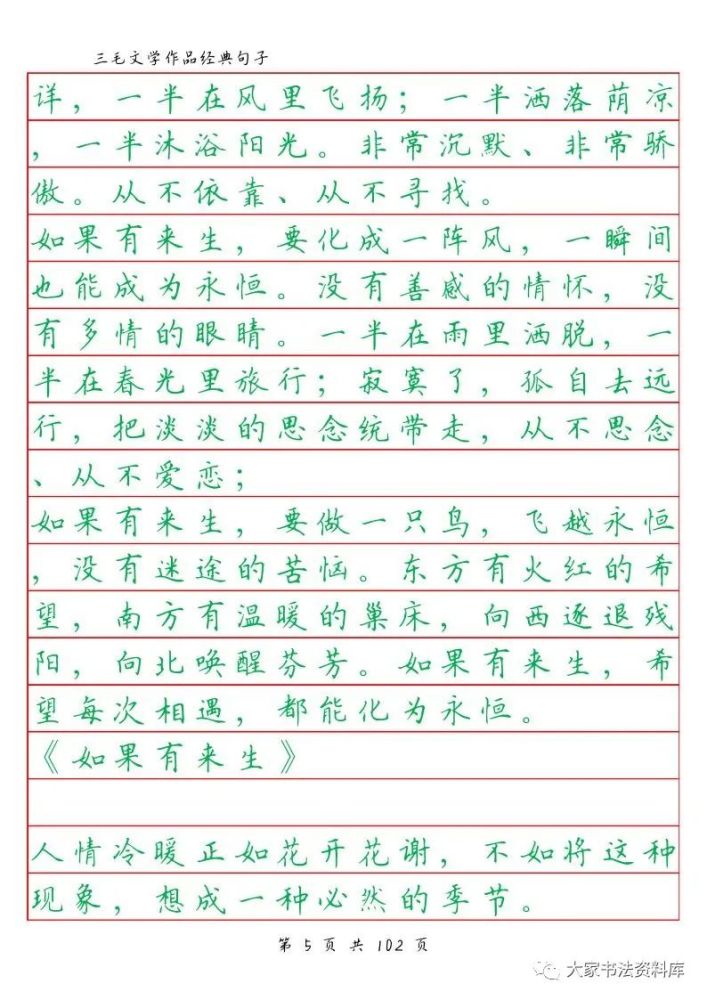 三毛文学作品经典句子
详，一半在风里飞扬；一半洒落荫凉
，一半沐浴阳光。非常沉默、非常骄
傲。从不依靠、从不寻找。
如果有来生，要化成一阵风，一瞬间
也能成为永恒。没有善感的情怀，没
有多情的眼睛。一半在雨里洒脱，一
半在春光里旅行；寂寞了，孤自去远
行，把淡淡的思念统带走，从不思念
、从不爱恋；
如果有来生，要做一只鸟，飞越永恒
，没有迷途的苦恼。东方有火红的希
望，南方有温暖的巢床，向西逐退残
阳，向北唤醒芬芳。如果有来生，希
望每次相遇，都能化为永恒。
《如果有来生》
人情冷暖正如花开花谢，不如将这种
现象，想成一种必然的季节。
第 5 页 共 102 页
大家书法资料库